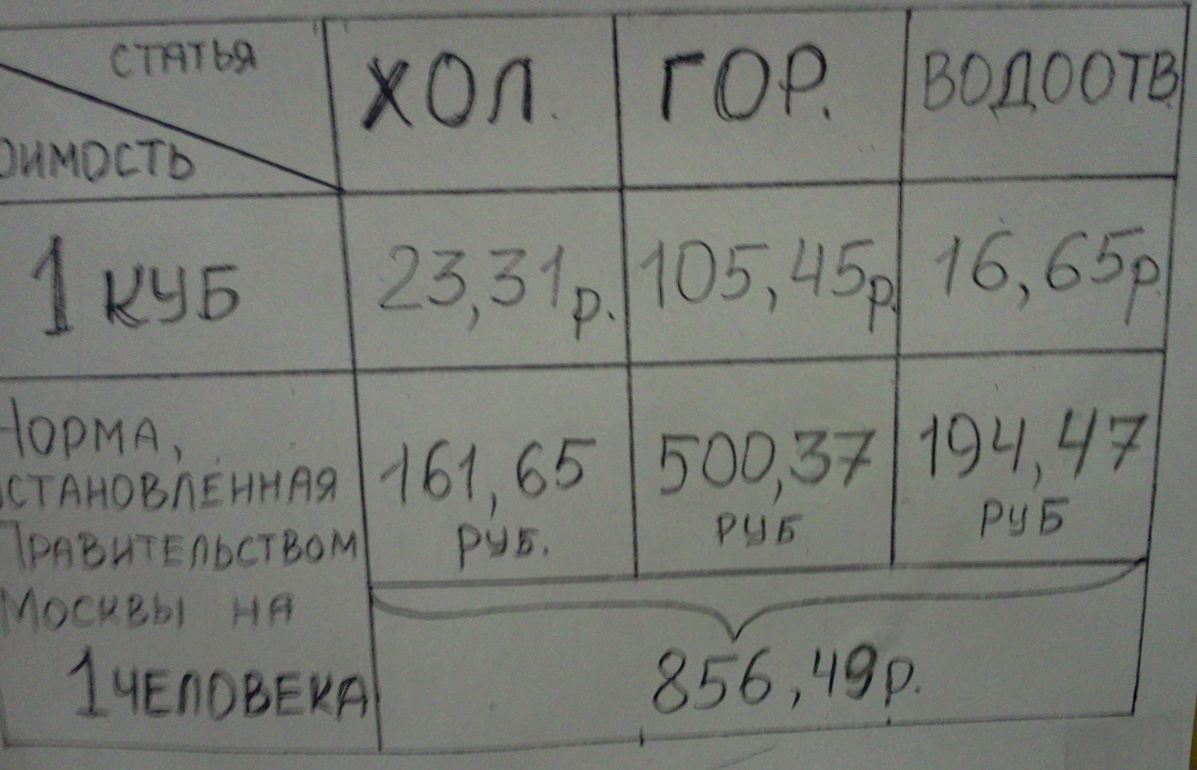 СТАТЬЯ
ОИМОСТЬ
ХОЛ. ГОР. ВОДООТВ
1 КУБ 23,31р. 105,45р. 16,65р
НОРМА,
СТАНОВЛЕННАЯ
ПРАВИТЕЛЬСТВОМ
МОСКВЫ НА
1 ЧЕЛОВЕКА
161,65 500,37 194,47
РУБ. РУБ РУБ
856,49р.